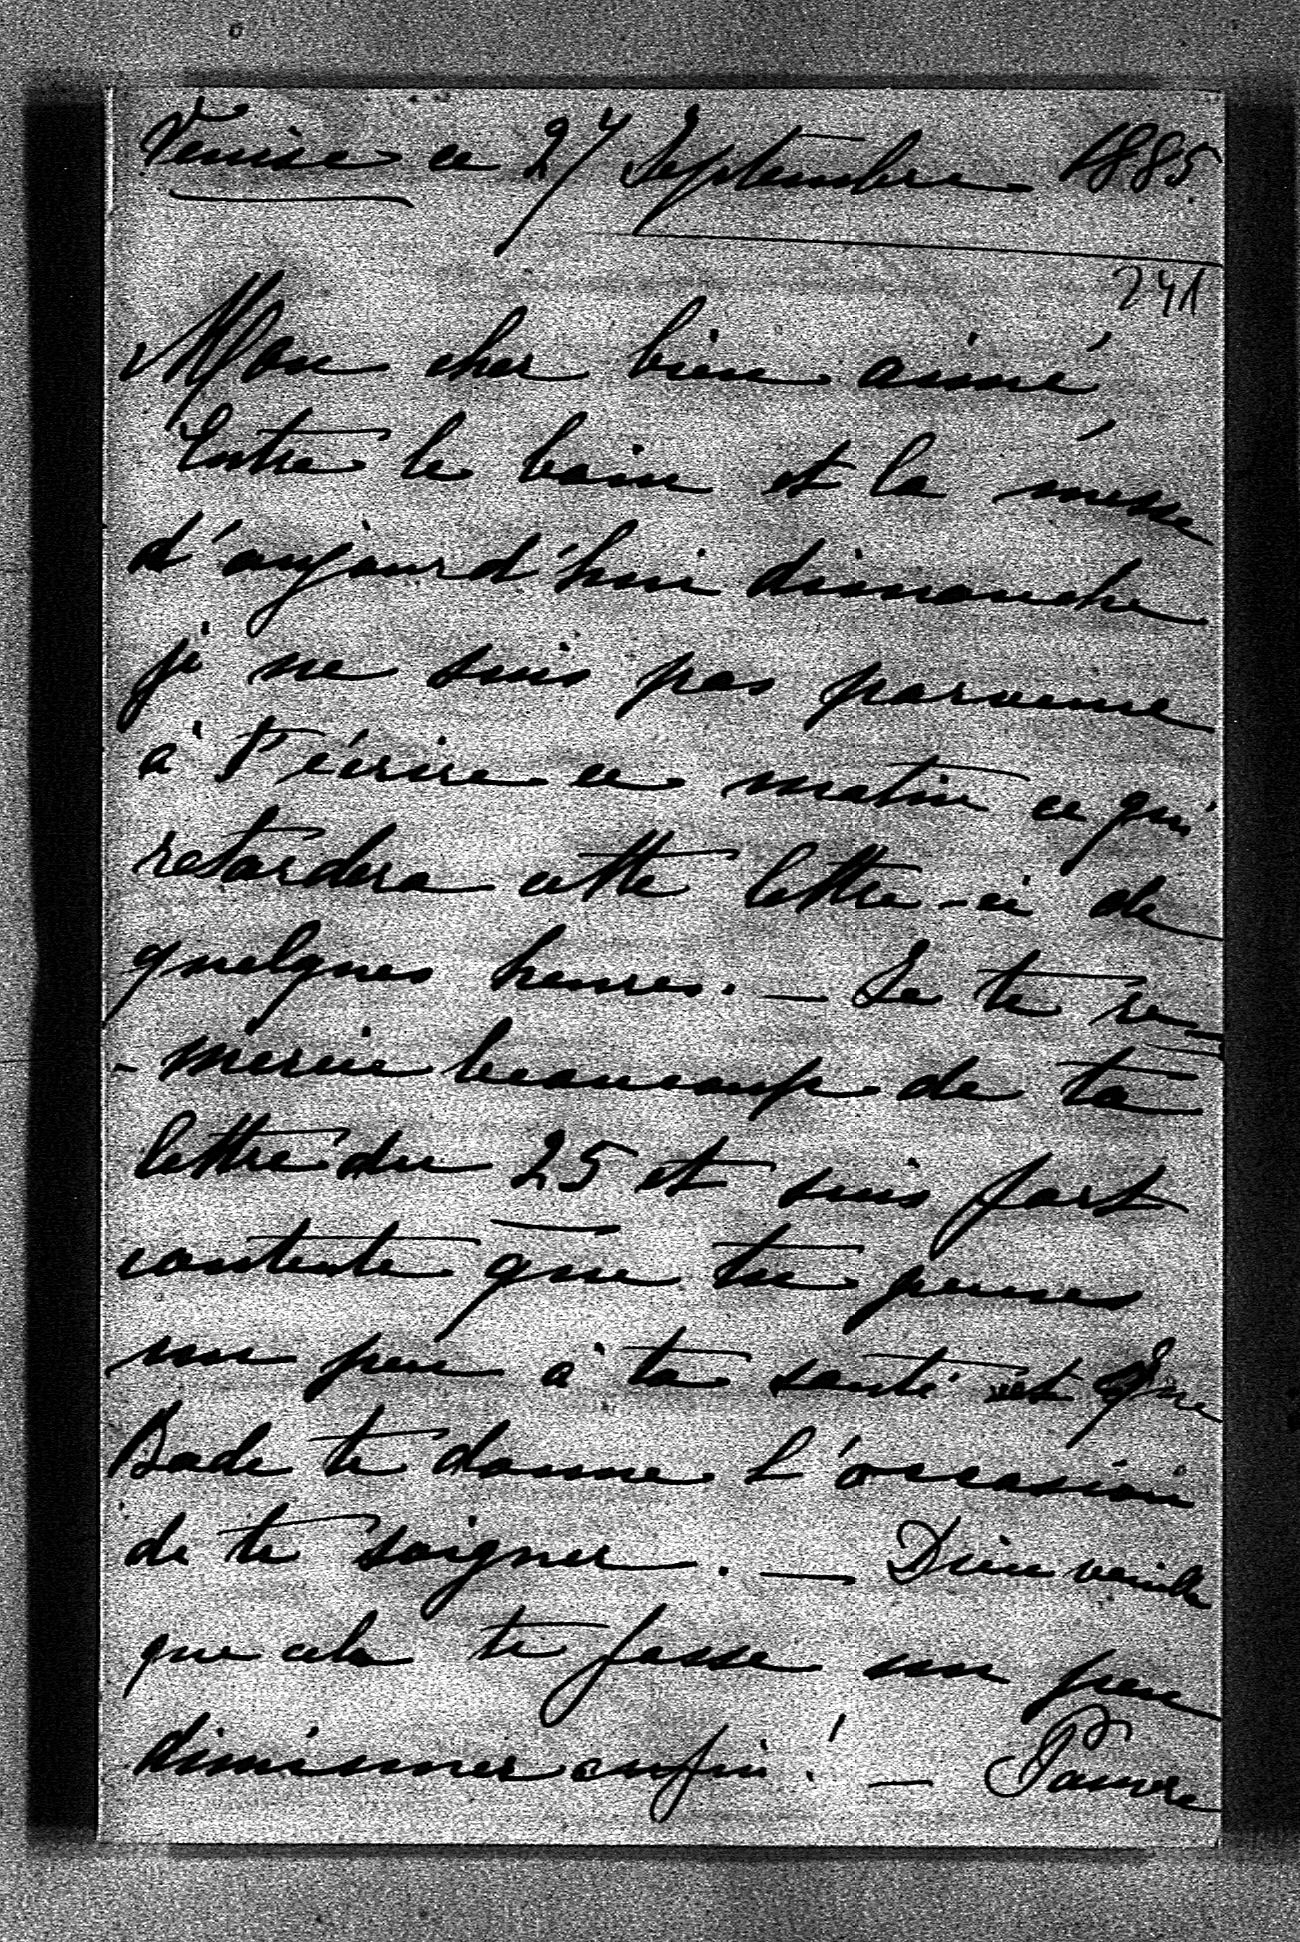 Venise ce 27 Septembre 1885
241
Mon cher bien aimé,
Entre le bain et la messe
d'aujourd'hui dimanche
je ne suis pas parvenue
à t'écrire ce matin ce qui
retardera cette lettre-ci de
quelques heures. — Je te re-
-mercie beaucoup de ta
lettre du 25 et suis fort
contente que tu penses
un peu à ta santé et que
Bade te donne l'occasion
de te soigner. — Dieu veuille
que cela te fasse un peu
diminuer enfin! — Pauvre